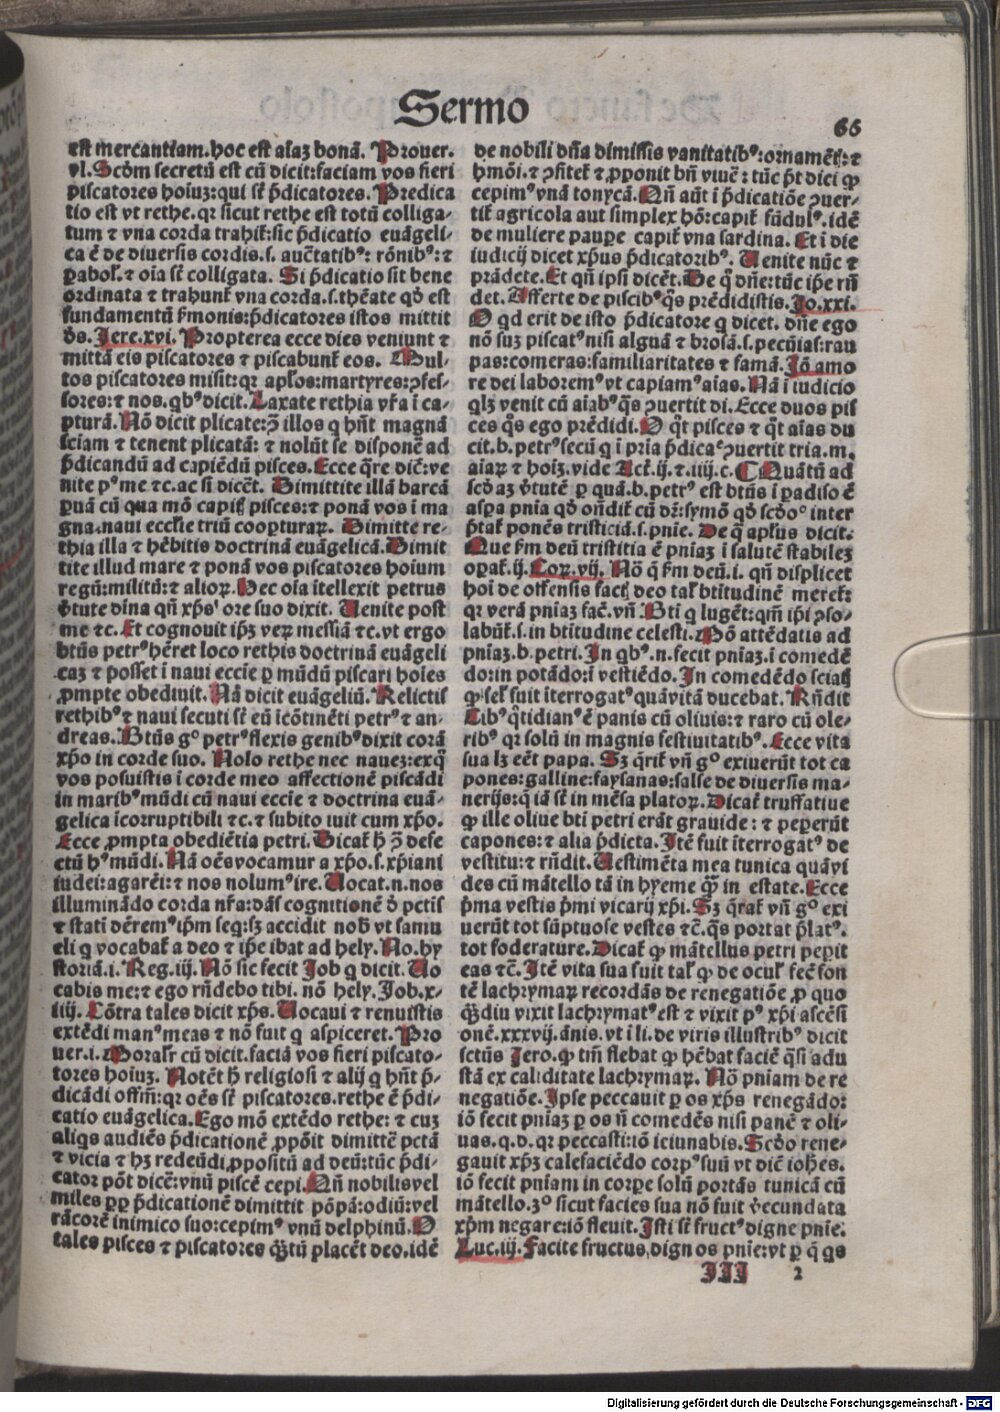 Sermo
66
est mercantiam.hoc est aīaʒ bonā. Prouer.
vl. Scd̄m secretū est cū dicit:faciam vos fieri
piscatores hoīuʒ:qui sūt p̄dicatores. Predica
tio est vt rethe.qꝛ sicut rethe est totū colliga/
tum ⁊ vna corda trahit̄:sic p̄dicatio euāgeli/
ca ē de diuersis cordis.s. auctatibꝰ: rōnibꝰ:⁊
ꝑabol'. ⁊ oīa sūt colligata. Si p̄dicatio sit bene
ordinata ⁊ trahunt̄ vna corda.s.theāte qd̓ est
fundamentū s̄monis:p̄dicatores istos mittit
de's. Jere.xvi. Propterea ecce dies veniunt ⁊
mittā eis piscatores ⁊ piscabunt̄ eos. Mul/
tos piscatores misit:qꝛ apl'os:martyres:ꝯfes/
sores:⁊ nos.qbꝰ dicit. Laxate rethia vr̄a ī ca/
pturā. Nō dicit plicate:ꝓ illos q hn̄t magnā
sciam ⁊ tenent plicatā: ⁊ nolūt se disponē ad
p̄dicandū ad capiēdū pisces. Ecce q̄re dic̄:ve
nite pꝰ me ⁊c.ac si dicēt. Dimittite illā barcā
ꝑuā cū qua mō capit̄ pisces:⁊ ponā vos ī ma
gna.naui ecclīe triū cooꝑturaꝝ. Dimitte re/
thia illa ⁊ hēbitis doctrinā euāgelicā. Dimit
tite illud mare ⁊ ponā vos piscatores hoium
regū:militū:⁊ alioꝝ. Hec oīa ītellexit petrus
v̓tute dīna qn̄ xp̄s' ore suo dixit. Uenite post
me ⁊c. Et cognouit ip̄ʒ veꝝ messiā ⁊c.vt ergo
btūs petrꝰ hēret loco rethis doctrinā euāgeli
caʒ ⁊ posset ī naui eccīe ꝑ mūdū piscari hoīes
ꝓmpte obediuit. Nā dicit euāgeliū. Relictis
rethibꝰ ⁊ naui secuti sūt eū īcōtinēti petrꝰ ⁊ an/
dreas. Btūs gͦ petrꝰ flexis genibꝰ dixit corā
xp̄o in corde suo. Nolo rethe nec nauez:exq̄
vos posuistis ī corde meo affectionē piscādi
in maribꝰ mūdi cū naui eccīe ⁊ doctrina euā/
gelica īcorruptibili ⁊c. ⁊ subito iuit cum xp̄o.
Ecce ꝓmpta obediētia petri. Dicat̄ h̄ ꝓ defe
ctū hꝰ mūdi. Nā oēs vocamur a xp̄o.s.xp̄iani
iudei:agarēi:⁊ nos nolumꝰ ire. Uocat.n.nos
illumināđo corda nr̄a:dās cognitionē d̓ pctīs
⁊ statī dēremꝰ ip̄m seq:sʒ accidit nob̄ vt samu
eli q vocabat̄ a deo ⁊ ip̄e ibat ad hely. No.hy
storiā.i. Reg.iij. Nō sic fecit Job q dicit. Uo
cabis me:⁊ ego rn̄debo tibi. nō hely. Job.x/
iiij. Cōtra tales dicit xp̄s. Uocaui ⁊ renuistis
extēdi manꝰ meas ⁊ nō fuit q aspiceret. Pro
uer.i. Moralr̄ cū dicit.faciā vos fieri piscato/
tores hoīuʒ. Notēt h̄ religiosi ⁊ alij q hn̄t p̄/
dicādi offm̄:qꝛ oēs sūt piscatores.rethe ē p̄di/
catio euāgelica. Ego mō extēdo rethe: ⁊ cuʒ
aliqs audiēs p̄dicationē ꝓpōit dimittē pctā
⁊ vicia ⁊ hʒ redeūdi ꝓpositū ad deū:tūc p̄di/
cator pōt dicē:vnū piscē cepi. Qn̄ nobilis vel
miles ꝓpꝑ p̄dicationē dimittit pōpā:odiū:vel
rācorē inimico suo:cepimꝰ vnū delphinū. O
tales pisces ⁊ piscatores q̄ȝtū placēt deo.idē
de nobili dn̄a dimissis vanitatibꝰ:ornamēt̄:⁊
hm̄oi. ⁊ ꝯfitet̄ ⁊ ꝓponit bn̄ viuē: tūc p̄t dici ꝙ
cepimꝰ vnā tonycā. Qn̄ aūt ī p̄dicatiōe ꝯuer/
tit̄ agricola aut simplex hō:capit̄ sūdulꝰ.idē
de muliere pauꝑe capit̄ vna sardina. Et ī die
iudicij dicet xp̄us p̄dicatoribꝰ. Uenite nūc ⁊
prādete. Et qn̄ ipsi dicēt. De q̄ dn̄e:tūc ip̄e rn̄
det. Afferte de piscibꝰ q̄s prēdidistis. Jo.xxi.
O qd erit de isto p̄dicatore q dicet. dn̄e ego
nō suʒ piscatꝰ nisi alguā ⁊ brosā.s.pecūīas:rau
pas:comeras:familiaritates ⁊ famā. Jō amo
re dei laboremꝰ vt capiamꝰ aīas. Nā ī iudicio
qlʒ venit cū aīabꝰ q̄s ꝯuertit dī. Ecce duos pis
ces q̄s ego prēdidi. O q̄t pisces ⁊ q̄t aīas du
cit.b.petrꝰ secū q ī prīa p̄dicāe ꝯuertit tria.m.
aīaꝝ ⁊ hoīʒ.vide Act̄.ij.⁊.iiij.c. ¶ Quātū ad
scd̄aʒ v̓tutē ꝑ quā.b.petrꝰ est btūs ī ꝑadiso ē
aspa pnīa qd̓ ondit̄ cū dr̄:symō qd̓ scd̓o inter
p̄tat̄ ponēs tristiciā.s.pnīe. De q̄ apl'us dicit.
Que s̄m deū tristitia ē pnīaʒ ī salutē stabilez
oꝑat̄.ij. Cor.vij. Nō q̄ s̄m deū.i. qn̄ displicet
hoī de offensis fact̄ deo tal' btitudinē meret̄:
qꝛ verā pnīaʒ fac̄.vn̄ Bti q lugēt:qm̄ ip̄i ꝯso/
labūt̄.s.in btitudine celesti. Mō attēdatis ad
pnīaʒ.b.petri. In qbꝰ.n.fecit pnīaʒ.ī comedē
do:in potādo:ī vestiēdo. In comedēdo sciat̄
ꝙ sel' fuit īterrogatꝰ quā vitā ducebat. Rn̄dit
Cibꝰ q̄tidianꝰ ē panis cū oliuis:⁊ raro cū ole/
ribꝰ qꝛ solū in magnis festiuitatibꝰ. Ecce vita
sua lʒ eēt papa. Sʒ q̄rit̄ vn̄ gͦ exiuerūt tot ca
pones:galline:faysanas:salse de diuersis ma/
nerijs:q̄ iā sūt in mēsa platoꝝ. Dicat̄ truffatiue
ꝙ ille oliue bti petri erāt grauide: ⁊ peꝑerūt
capones:⁊ alia p̄dicta. Itē fuit īterrogatꝰ de
vestitu:⁊ rn̄dit. Uestimēta mea tunica quā vi
des cū mātello tā in hyeme q̄ȝ in estate. Ecce
p̄ma vestis p̄mi vicarij xp̄i. Sʒ q̄rat̄ vn̄ gͦ exi
uerūt tot sūptuose vestes ⁊c̄.q̄s portat p̄latꝰ.
tot foderature. Dicat̄ ꝙ mātellus petri peꝑit
eas ⁊c̄. Itē vita sua fuit tal' ꝙ de ocul' fec̄ fon
tē lachrymaꝝ recordās de renegatiōe ꝓ quo
q̄ȝdiu vixit lachrymatꝰ est ⁊ vixit pꝰ xp̄i ascēsi
onē.xxxvij.ānis.vt ī li.de viris illustribꝰ dicit
sctūs Jero.ꝙ tm̄ flebat ꝙ hēbat faciē q̄si adu
stā ex caliditate lachrymaꝝ. Nō pniam de re
negatiōe. Ipse peccauit ꝑ os xp̄s renegādo:
iō fecit pnīaʒ ꝑ os n̄ comedēs nisi panē ⁊ oli/
uas.q.d.qꝛ peccasti:iō ieiunabis. Scd̓o rene/
gauit xp̄ʒ calefaciēdo corpꝰ suū vt dic̄ ioh̄es.
iō fecit pnīam in corꝑe solū portās tunicā cū
mātello.3ͦ sicut facies sua nō fuit v̓ecundata
xp̄m negare:iō fleuit. Isti sūt fructꝰ digne pnīe.
Luc.iij. Facite fructus dignos pnīe:vt ꝑ q̄ qs
III 2
Digitalisierung gefördert durch die Deutsche Forschungsgemeinschaft - DFG